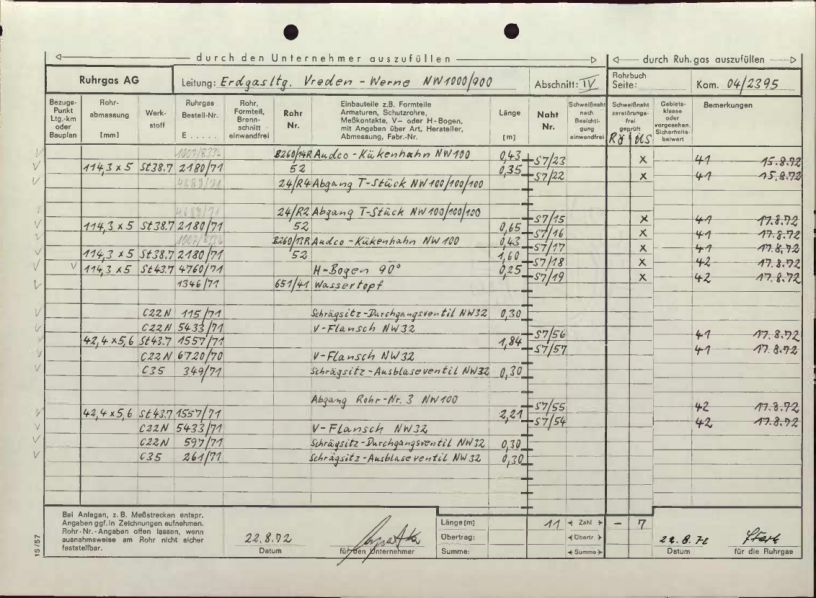 durch den Unternehmer auszufüllen durch Ruhrgas auszufüllen
Ruhrgas AG Leitung: Erdgasltg. Vreden - Werne NW 1000/900 Abschnitt: IV Rohrbuch Seite: Kom. 04/2395
Bezugs-Punkt Ltg.-km oder Bauplan Rohr-abmessung [mm] Werk-stoff Ruhrgas Bestell-Nr. E Rohr, Formteil, Brenn-schnitt einwandfrei Rohr Nr. Einbauteile z.B. Formteile Armaturen, Schutzrohre, Meßkontakte, V- oder H-Bogen, mit Angaben über Art, Hersteller, Abmessung, Fabr.-Nr. Länge [m] Naht Nr. Schweißnaht nach Besichti-gung einwandfrei Schweißnaht zerstörungs-frei geprüft Rö US Gebiets-klasse oder vorgesehen. Sicherheits-beiwert Bemerkungen
8260/14R Audco-Kükenhahn NW 100 0,43
S7/23 x 41 15.8.72
114,3 x 5 St38.7 2180/71 52 0,35
S7/22 x 41 15.8.72
24/R4 Abgang T-Stück NW 100/100/100
24/R2 Abgang T-Stück NW 100/100/100
S7/15 x 41 17.8.72
114,3 x 5 St38.7 2180/71 52 0,65
S7/16 x 41 17.8.72
Audco-Kükenhahn NW 100 0,43
S7/17 x 41 17.8.72
114,3 x 5 St38.7 2180/71 52 1,60
S7/18 x 42 17.8.72
114,3 x 5 St43.7 4760/71 H-Bogen 90° 0,25
S7/19 x 42 17.8.72
1346/71 651/41 Wassertopf
C22N 115/71 Schrägsitz-Durchgangsventil NW32 0,30
C22N 5433/71 V-Flansch NW32
S7/56 41 17.8.72
42,4 x 5,6 St43.7 1557/71 1,84
S7/57 41 17.8.72
C22N 6720/70 V-Flansch NW32
C35 349/71 Schrägsitz-Ausblaseventil NW32 0,30
Abgang Rohr-Nr. 3 NW100
S7/55 42 17.8.72
42,4 x 5,6 St43.7 1557/71 2,21
S7/54 42 17.8.72
C22N 5433/71 V-Flansch NW32
C22N 597/71 Schrägsitz-Durchgangsventil NW32 0,30
C35 261/71 Schrägsitz-Ausblaseventil NW32 0,30
Bei Anlagen, z. B. Meßstrecken entspr.
Angaben ggf. in Zeichnungen aufnehmen.
Rohr-Nr.-Angaben offen lassen, wenn
ausnahmsweise am Rohr nicht sicher
feststellbar.
22.8.72
Datum
für den Unternehmer
Länge [m] 11 Zahl - 7
Übertrag: Übertr.
Summe: Summe
22.8.72
Datum
für die Ruhrgas
15/57